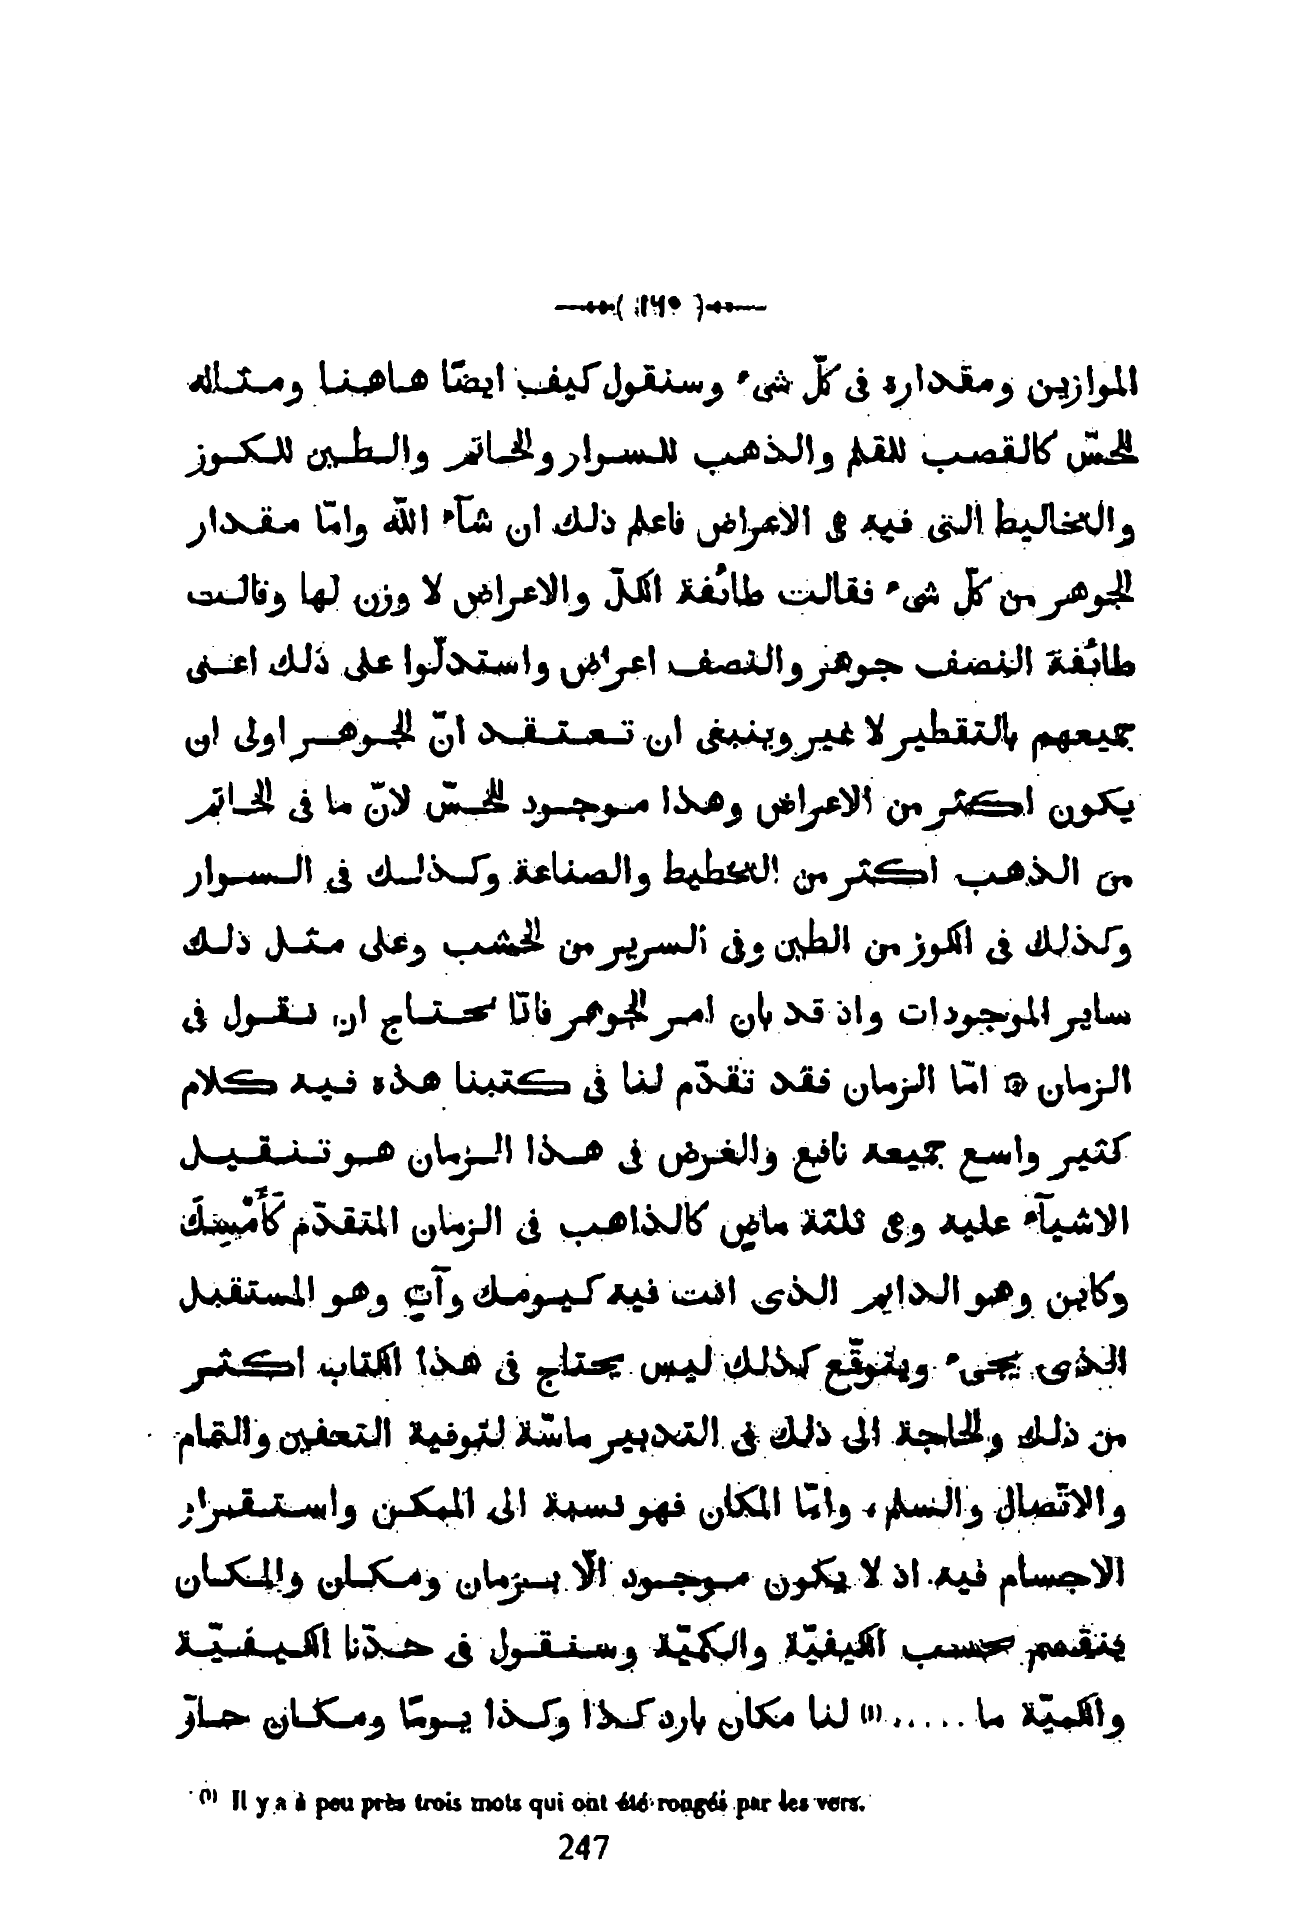 ( ١٦٠ )
الموازين ومقداره فى كلّ شىء وسنقول كيف ايضًا هاهنا ومثاله
للحسّ كالقصب للقلم والذهب للسوار والخاتم والطين للكوز
والتخاليط التى فيه هى الاعراض فاعلم ذلك ان شآء الله وامّا مقدار
الجوهر من كلّ شىء فقالت طائفة الكلّ والاعراض لا وزن لها وقالت
طائفة النصف جوهر والنصف اعراض واستدلّوا على ذلك اعنى
جميعهم بالتقطير لا غير وينبغى ان تعتقد انّ الجوهر اولى ان
يكون اكثر من الاعراض وهذا موجود للحسّ لانّ ما فى الخاتم
من الذهب اكثر من التخطيط والصناعة وكذلك فى السوار
وكذلك فى الكوز من الطين وفى السرير من الخشب وعلى مثل ذلك
ساير الموجودات واذ قد بان امر الجوهر فانّا نحتاج ان نقول فى
الزمان ۞ امّا الزمان فقد تقدّم لنا فى كتبنا هذه فيه كلام
كثير واسع جميعه نافع والغرض فى هذا الزمان هو تنقيل
الاشيآء عليه وهى ثلثة ماضٍ كالذاهب فى الزمان المتقدّم كَأَمْسِكَ
وكاين وهو الدايم الذى انت فيه كيومك وآتٍ وهو المستقبل
الذى يجىء ويتوقّع كذلك ليس يحتاج فى هذا الكتاب اكثر
من ذلك والحاجة الى ذلك فى التدبير ماسّة لتوفية التعفين والتمام
والاتّصال والسلم، وامّا المكان فهو نسبة الى الممكن واستقرار
الاجسام فيه اذ لا يكون موجود الّا بزمان ومكان والمكان
ينقسم بحسب الكيفيّة والكميّة وسنقول فى حدّنا الكيفيّة
والكميّة ما ..... (١) لنا مكان بارد كذا وكذا يومًا ومكان حارّ
(1) Il y a à peu près trois mots qui ont été rongés par les vers.
247